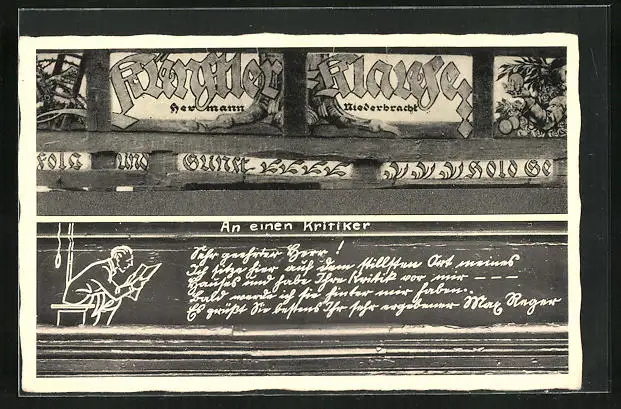 Künstler Klause
Hermann Niederbracht
und Gunst Hold
An einen Kritiker
Sehr geehrter Herr!
Ich sitze hier auf dem stillsten Ort meines
Hauses und habe Ihre Kritik vor mir – – –
bald werde ich sie hinter mir haben.
Es grüßt Sie bestens Ihr sehr ergebener Max Reger